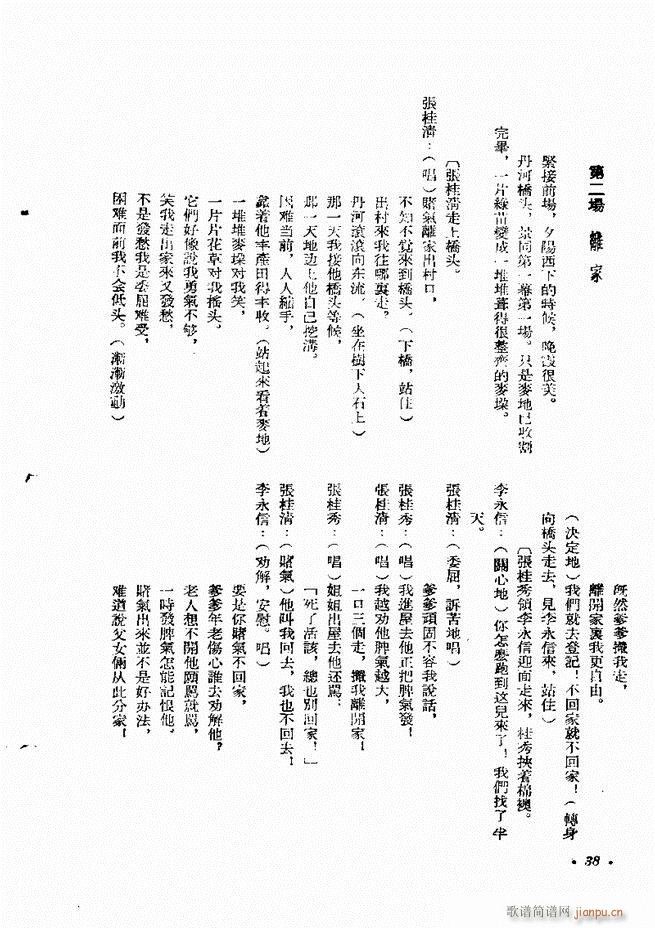 第二場 離家
緊接前場，夕陽西下的時候，晚霞很美。
丹河橋头，景同第一幕第一場。只是麥地已收割
完畢，一片綠苗變成一堆堆葺得很整齊的麥垜。
〔張桂清走上橋头。
張桂清：（唱）賭氣離家出村口，
不知不覺來到橋头。（下橋，站住）
出村來我往哪裏走。
丹河滾滾向东流。（坐在樹下大石上）
那一天我接他橋头等候，
那一天地边上他自己挖溝。
困难当前，人人縮手，
靠着他丰產田得丰收。（站起來看着麥地）
一堆堆麥垜对我笑，
一片片花草对我搖头。
它們好像說我勇氣不够，
笑我走出家來又發愁。
不是發愁我是委屈难受，
困难面前我不会低头。（漸漸激動）
既然爹爹攆我走，
離開家裏我更自由。
（决定地）我們就去登記！不回家就不回家！（轉身
向橋头走去，見李永信來，站住）
〔張桂秀領李永信迎面走來，桂秀挾着棉襖。
李永信：（關心地）你怎麽跑到这兒來了！我們找了半
天。
張桂清：（委屈，訴苦地唱）
爹爹頑固不容我說話，
張桂秀：（唱）我進屋去他正把脾氣發！
張桂清：（唱）我越劝他脾氣越大，
一口三個走，攆我離開家！
張桂秀：（唱）姐姐出屋去他还罵：
「死了活該，總也別回家！」
張桂清：（賭氣）他叫我回去，我也不回去！
李永信：（劝解，安慰。唱）
要是你賭氣不回家，
爹爹年老傷心誰去劝解他？
老人想不開他願罵就罵，
一時發脾氣怎能記恨他。
賭氣出來並不是好办法，
难道說父女倆从此分家！
• 38 •
歌谱简谱网 jianpu.cn